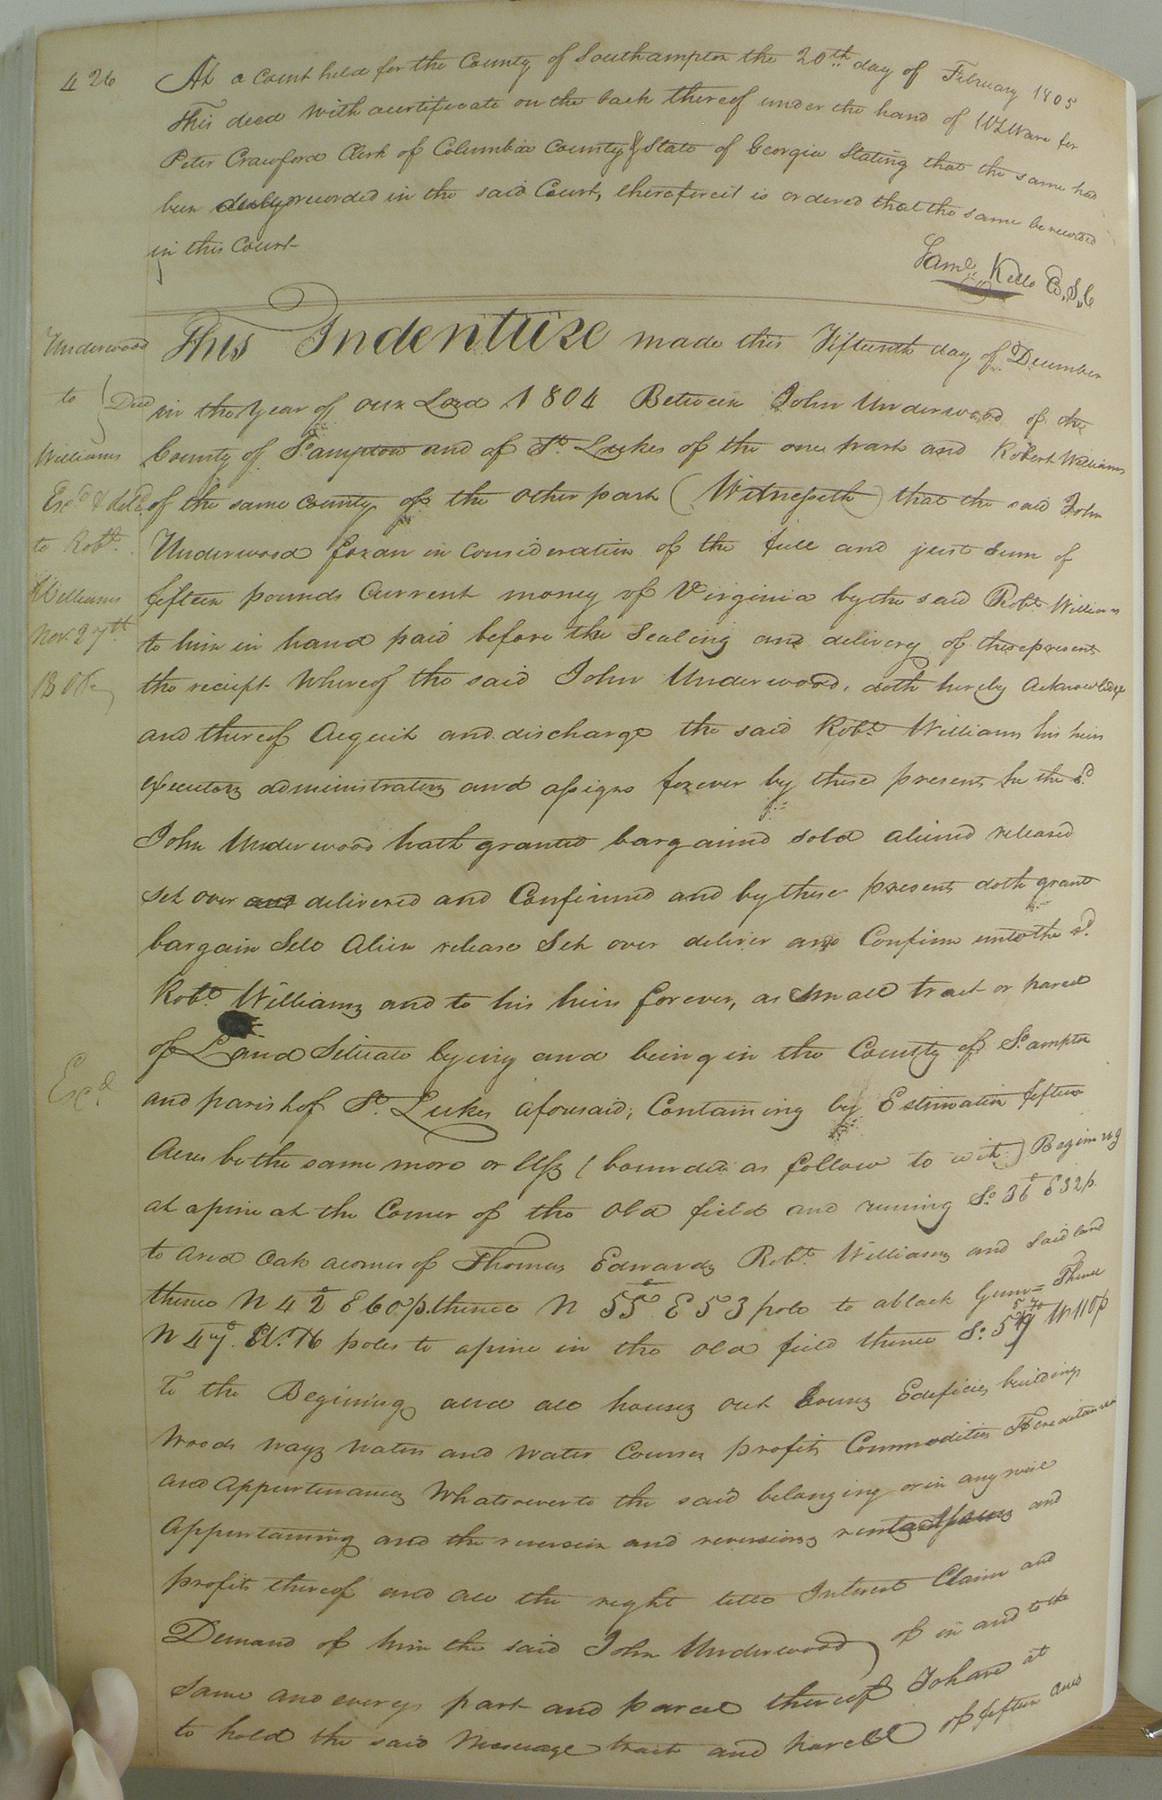 426
At a Court held for the County of Southampton the 20th day of February 1805
This deed with acertificate on the back thereof under the hand of W Ware for
Peter Crawford Clerk of Columbia County & State of Georgia Stating that the same had
been duly recorded in the said Court, thereforeit is ordered that the same be recorded
in this Court
Saml. Kello C,S,C
Underwood
to } Deed
Williams
Exd. & deld.
to Robt.
Williams
Nov. 27th
Exd.
This Indenture made this Fifteenth day of December
in the Year of our Lord 1804 Between John Underwood of the
County of S.ampton and of St. Lukes of the one part and Robert Williams
of the same county of the other part (Witnesseth) that the said John
Underwood for an in consideration of the full and just Sum of
fifteen pounds Current money of Virginia by the said Robt. Williams
to him in hand paid before the Sealing and delivery of these presents
the reciept Whereof the said John Underwood, doth hereby acknowledge
and thereof Acquit and discharge the said Robt. Williams his heirs
executors administrators and assigns forever by these presents he the sd.
John Underwood hath granted bargained sold aliened released
Set over and delivered and Confirmed and by these presents doth grant
bargain Sell Alien release Set over deliver and Confirm unto the sd.
Robt. Williams and to his heirs forever, a Small tract or parcel
of Land Situate lying and being in the County of S.ampton
and parish of St. Lukes aforesaid, Containing by Estimation fifteen
Acres be the same more or less (bounded as follow to wit) Begining
at apine at the Corner of the Old field and runing So. 36 E 32 p.
to a red Oak acorner of Thomas Edwards Robt. Williams and Said land
thence N 42 E 60 p. thence N 55 E 53 pole to a black Gum = Thence
N 47 W. 76 poles to apine in the old field thence So. W 110 p
To the Begining and all houses out houses Edeficies buildings
Woods ways waters and water Courses profits Commodities Hereditaments
and Appurtenances Whatsoever to the said belonging or in any wise
Appertaining and the reversion and reversions rents Issues and
profits thereof and all the right title Interest Claim and
Demand of him the said John Underwood) of in and to the
Same and every part and parcel thereof To have at
to hold the said Messuage tract and parcel of fifteen acres